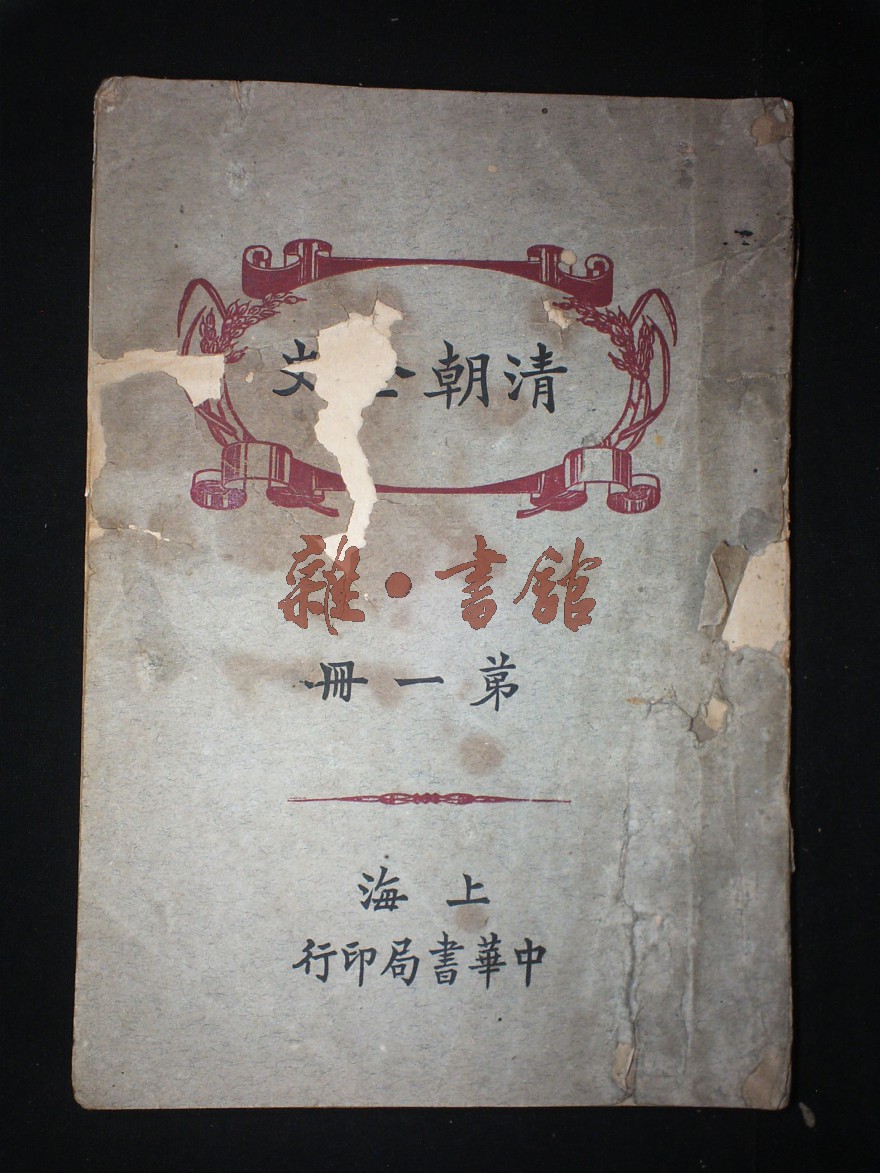 清朝全史
雜·書館
第一冊
上海
中華書局印行